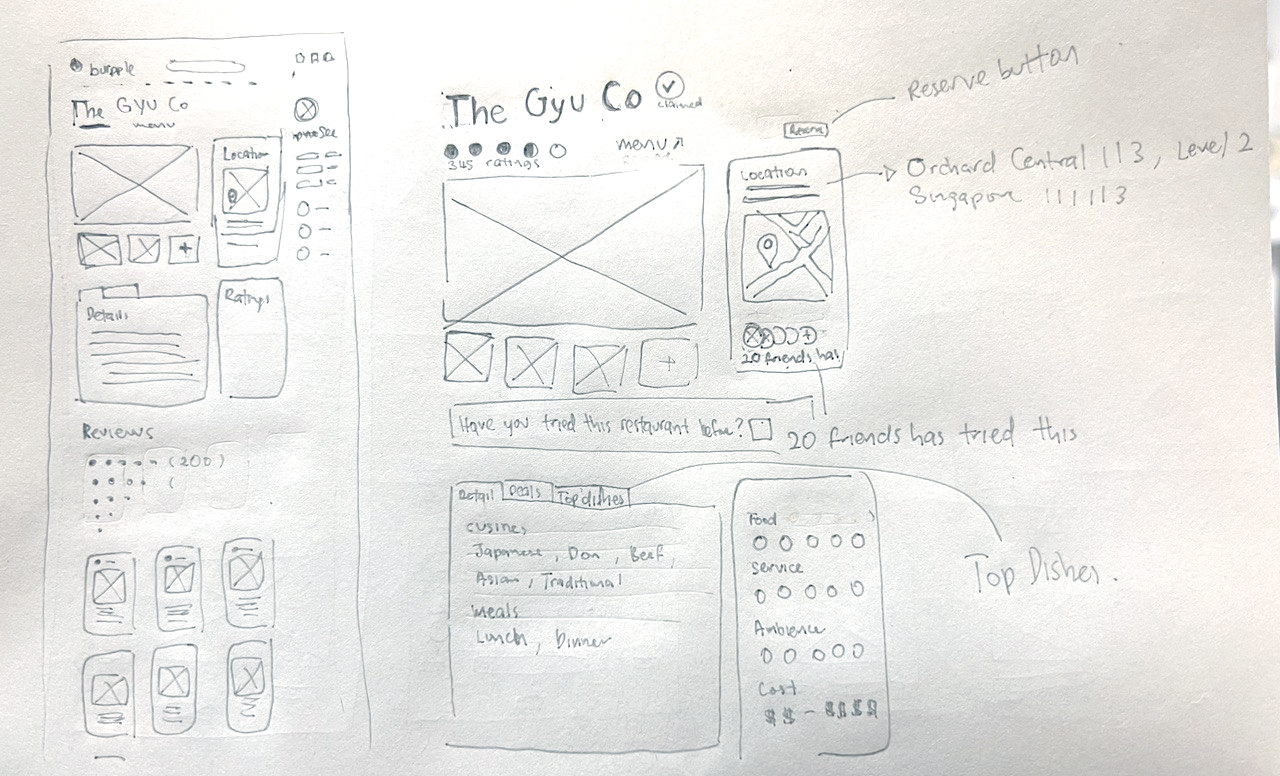 burpple
The Gyu Co
menu
Location
Details
Ratings
Reviews
(200)
The Gyu Co
claimed
345 ratings
menu
Reserve
Reserve button
Location
Orchard Central 113, Level 2
Singapore 111113
20 friends has
Have you tried this restaurant before?
20 friends has tried this
Detail
Deals
Top dishes
cusines
Japanese, Don, Beef,
Asian, Traditional
meals
Lunch, Dinner
Food
Service
Ambience
Cost
$$ - $$$$
Top Dishes.